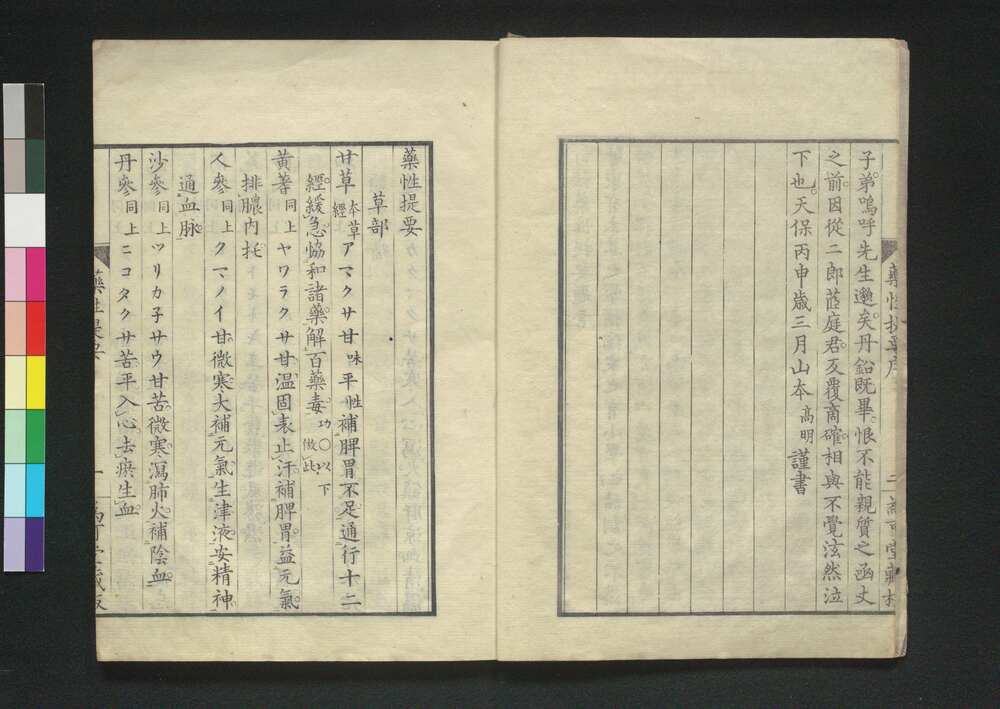 子弟嗚呼先生邈矣丹鉛既畢恨不能親質之函丈
之前因從二郎茝庭君反覆商確相與不覺泫然泣
下也天保丙申歲三月山本高明謹書
藥性提要
草部
甘草 本草經 アマクサ甘味平性補脾胃不足通行十二
經緩急恊和諸藥解百藥毒 功〇以下倣此
黃蓍同上ヤワラクサ甘温固表止汗補脾胃益元氣
排膿内托
人參同上クマノイ甘微寒大補元氣生津液安精神
通血脉
沙參同上ツリカ子サウ甘苦微寒瀉肺火補陰血
丹參同上ニコタクサ苦平入心去瘀生血
藥性提要 一